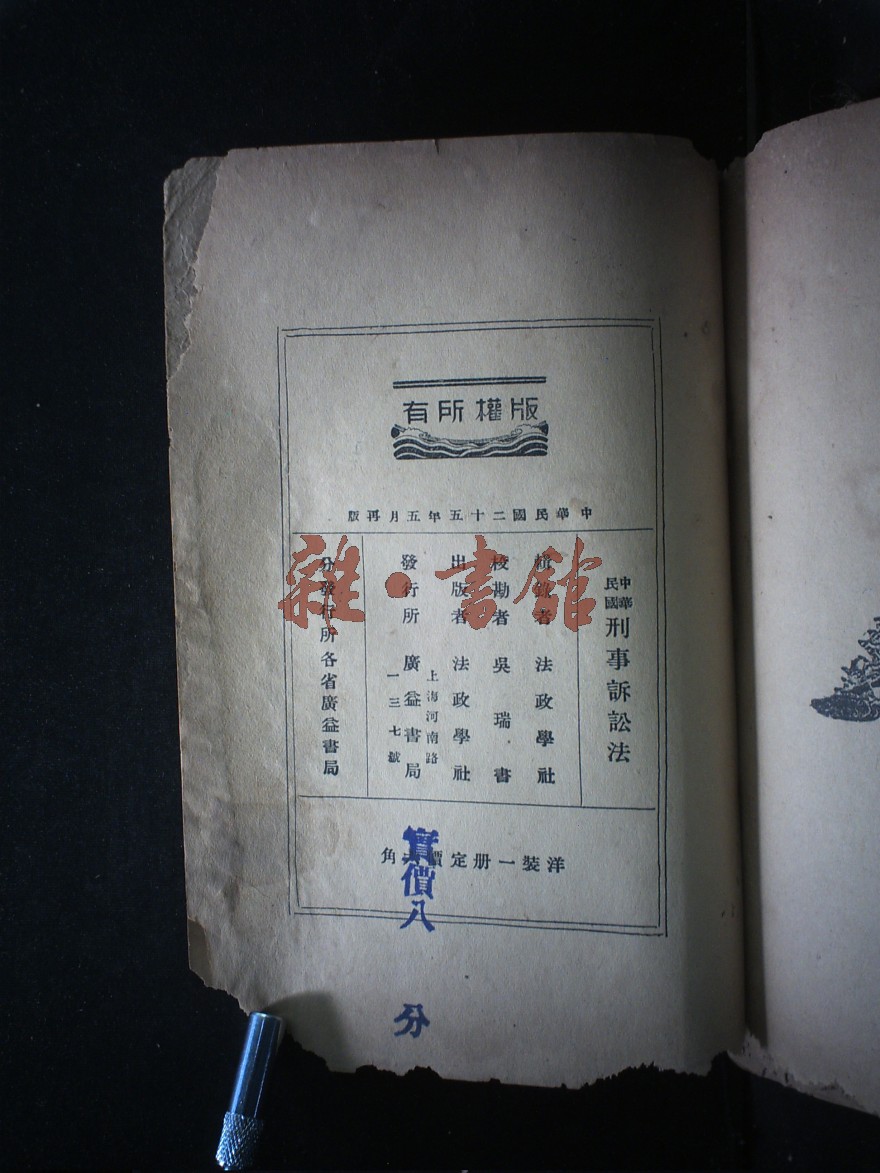 版權所有
中華民國二十五年五月再版
中華民國刑事訴訟法
輯錄者 法政學社
校勘者 吳瑞書
出版者 法政學社
上海河南路
發行所 廣益書局
一三七號
分發行所各省廣益書局
洋裝一册定價角
實價八分
雜·書館